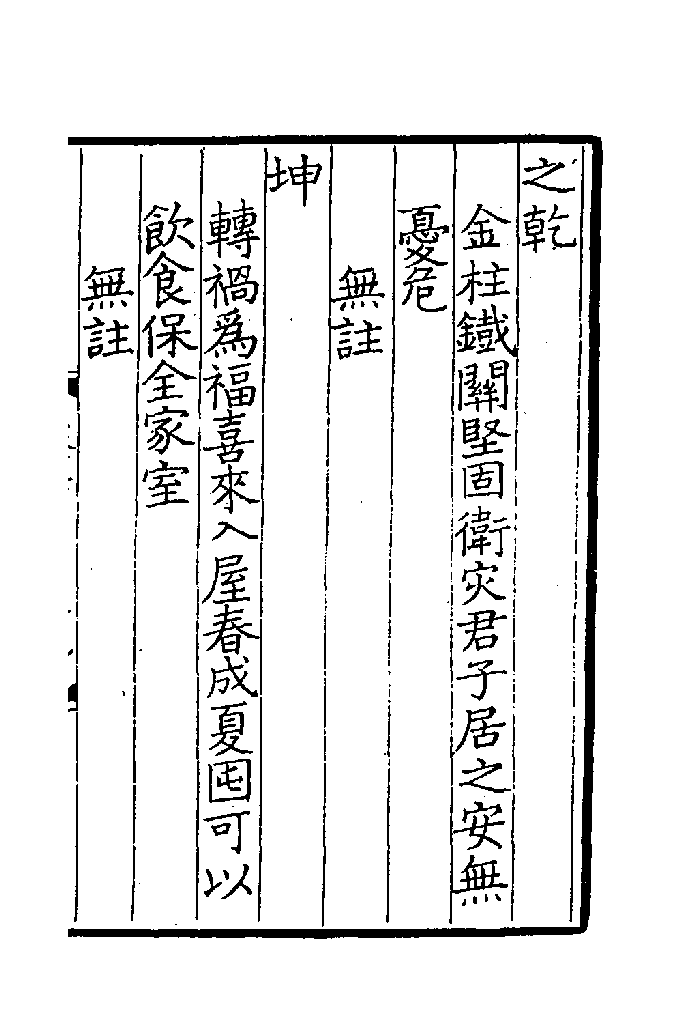 之乾
金柱鐵關堅固衛灾君子居之安無
憂危
無註
坤
轉禍爲福喜來入屋春成夏囤可以
飲食保全家室
無註